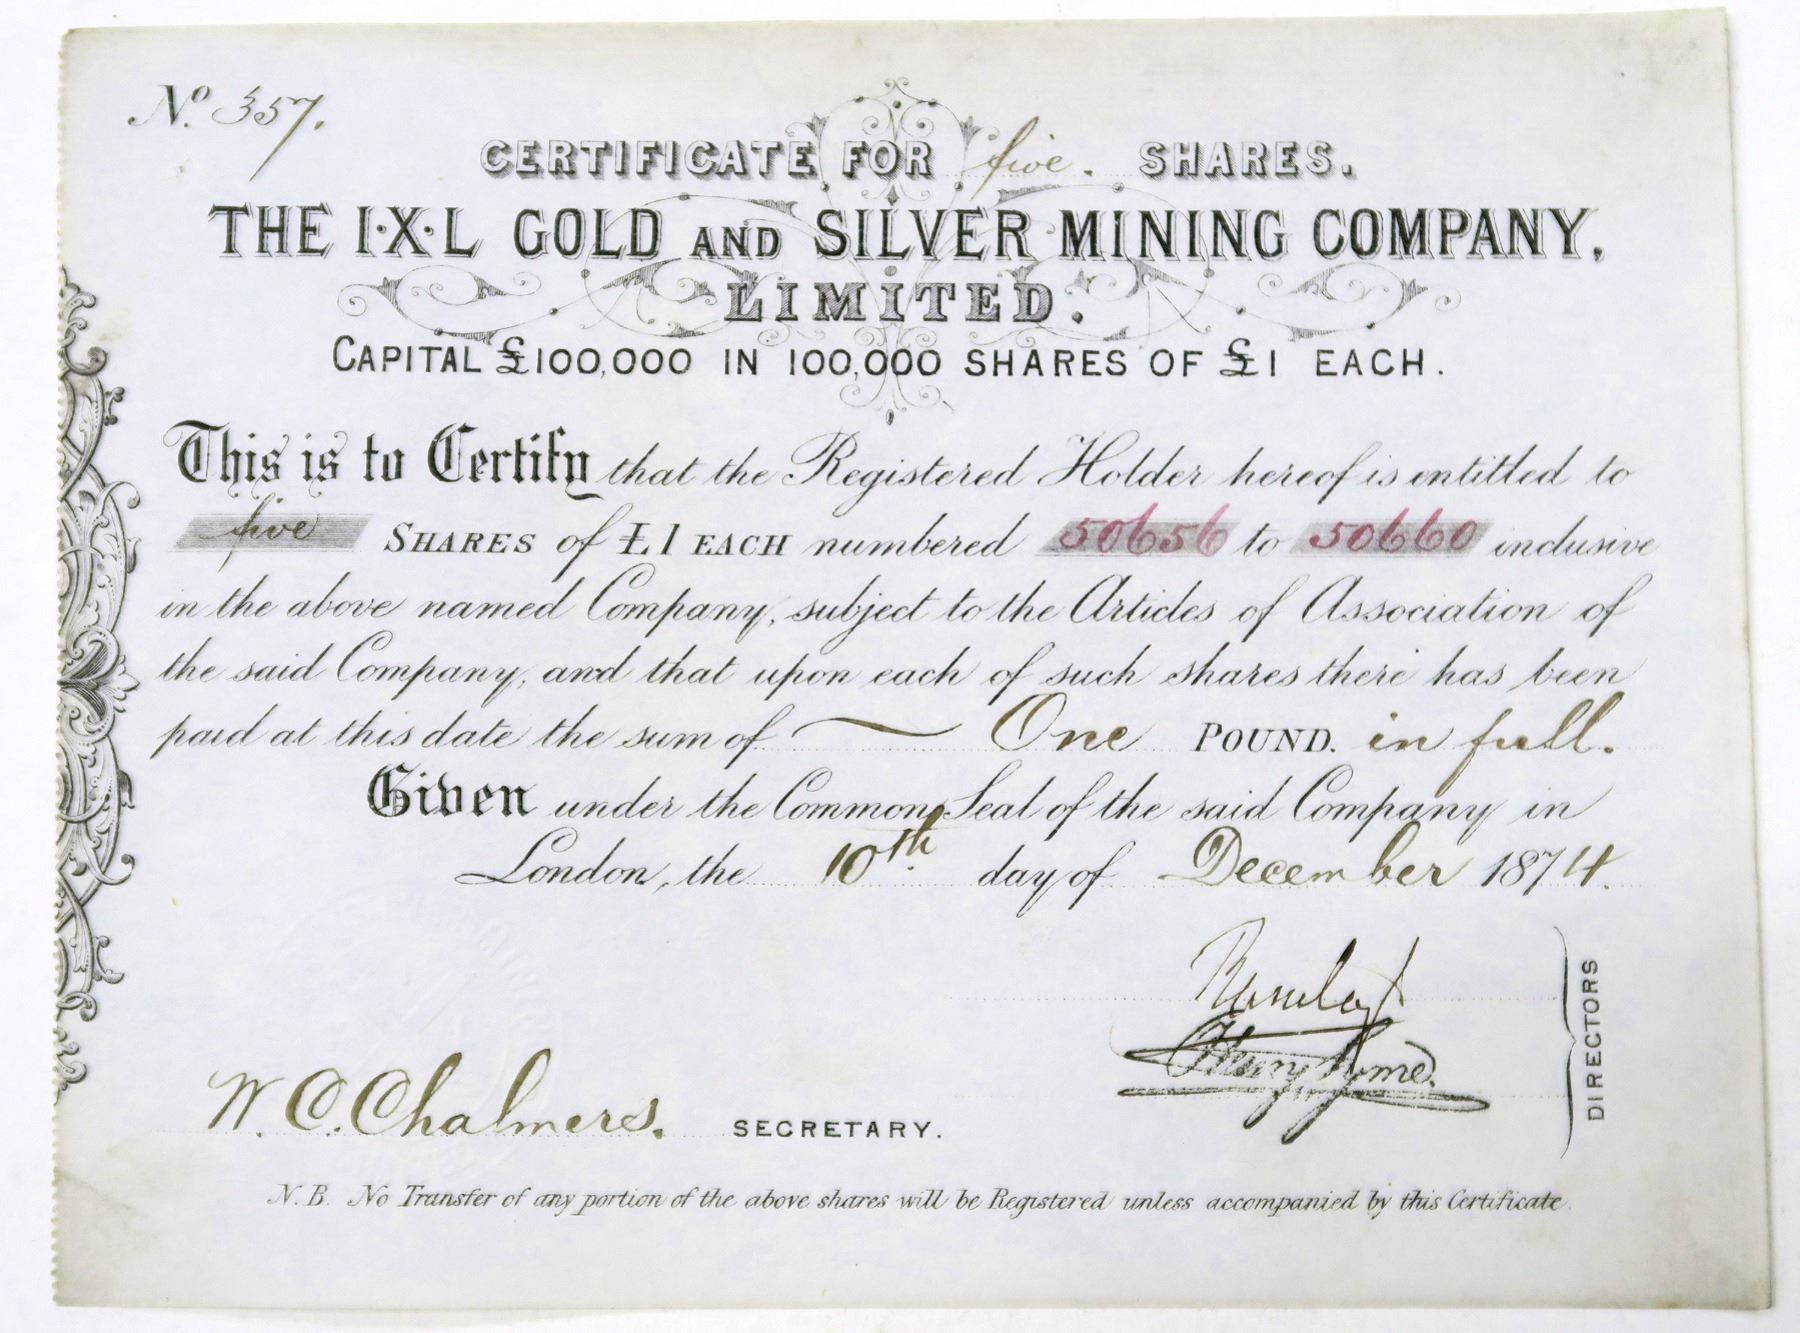 No. 357.
CERTIFICATE FOR five. SHARES.
THE I·X·L GOLD AND SILVER MINING COMPANY,
LIMITED.
CAPITAL £100,000 IN 100,000 SHARES OF £1 EACH.
This is to Certify that the Registered Holder hereof is entitled to
five SHARES of £1 EACH numbered 50656 to 50660 inclusive
in the above named Company, subject to the Articles of Association of
the said Company, and that upon each of such shares there has been
paid at this date the sum of One POUND. in full.
Given under the Common Seal of the said Company in
London, the 10th day of December 1874.
Henry Syme.
DIRECTORS
W. C. Chalmers. SECRETARY.
N.B. No Transfer of any portion of the above shares will be Registered unless accompanied by this Certificate.